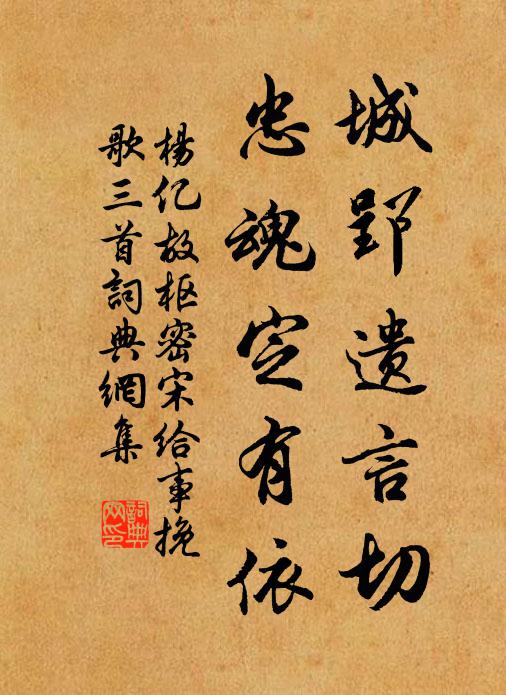 城郢遗言切
忠魂定有依
杨亿故枢密宋给事挽
歌三首詞典網集
詞典
网印